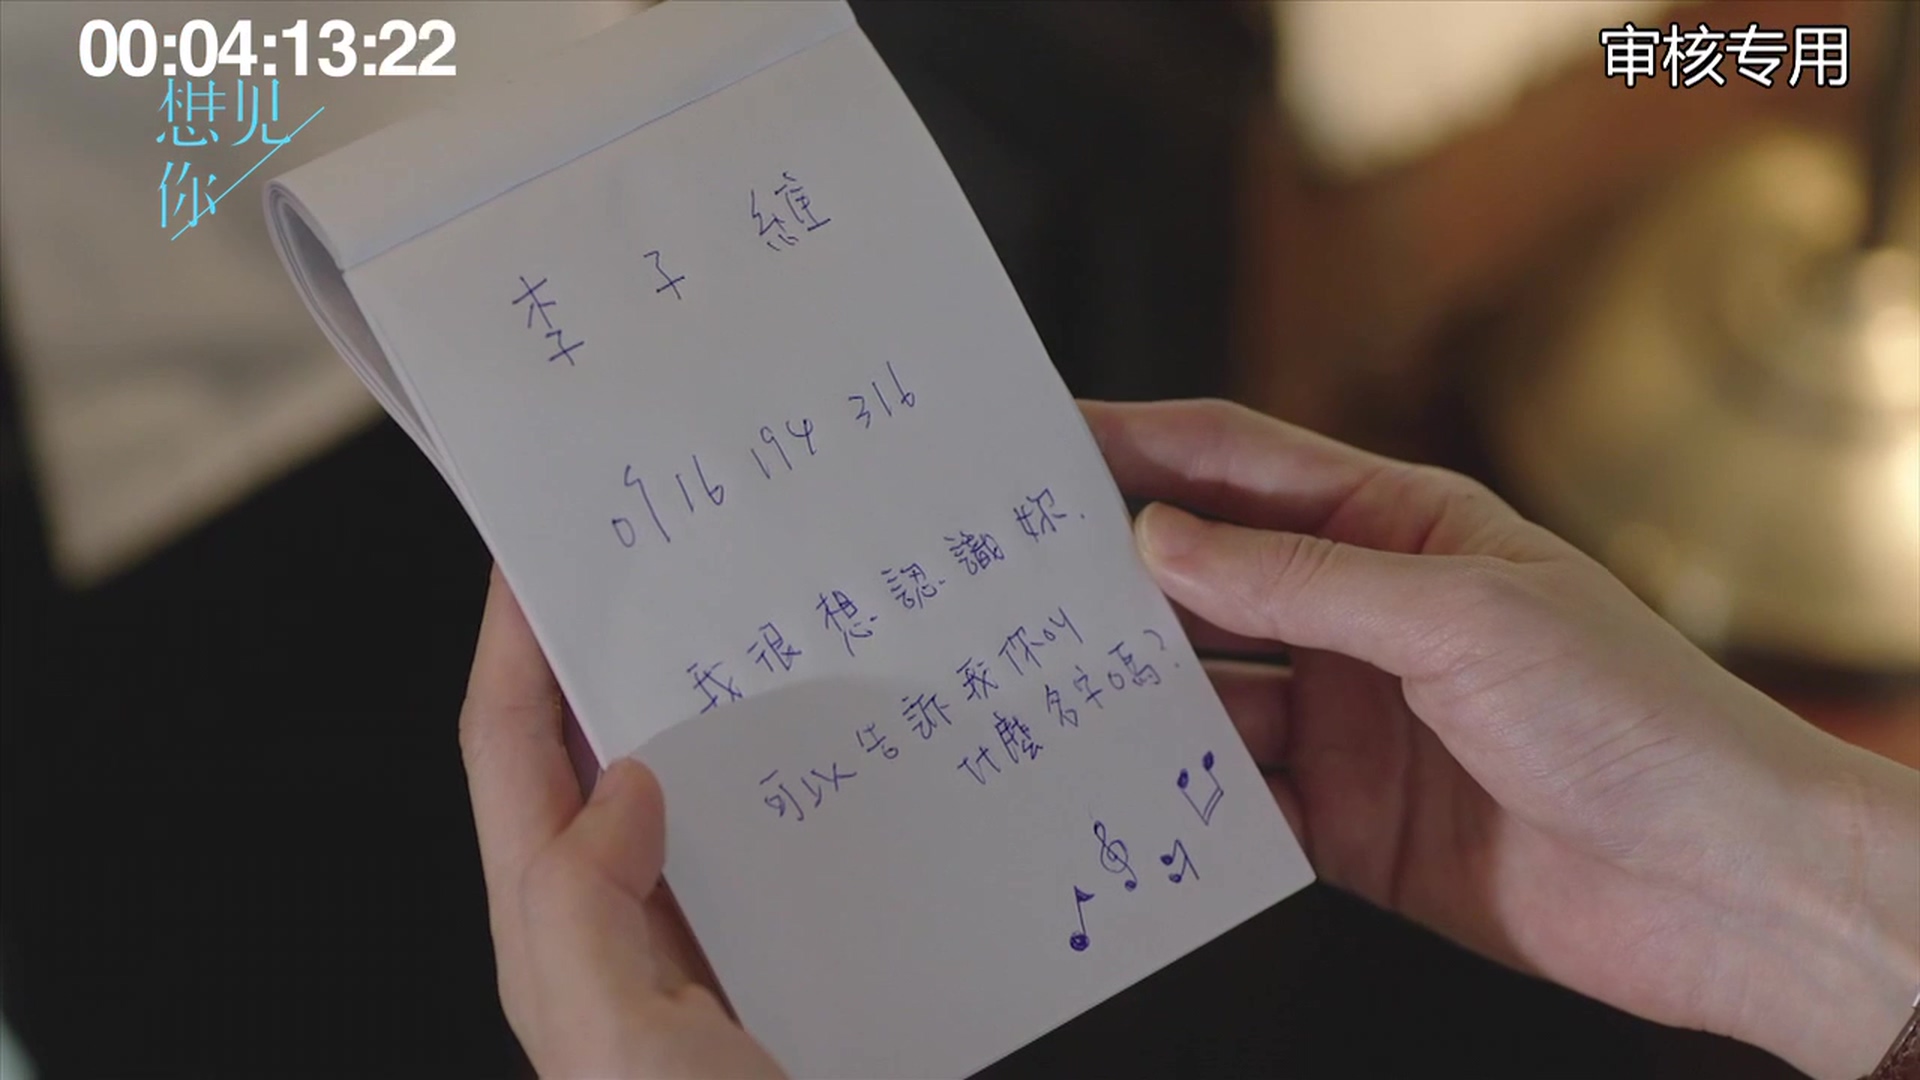 00:04:13:22
审核专用
想见
你
李 子 維
0916 194 316
我很想認識妳.
可以告訴我你叫
什麼名字嗎?